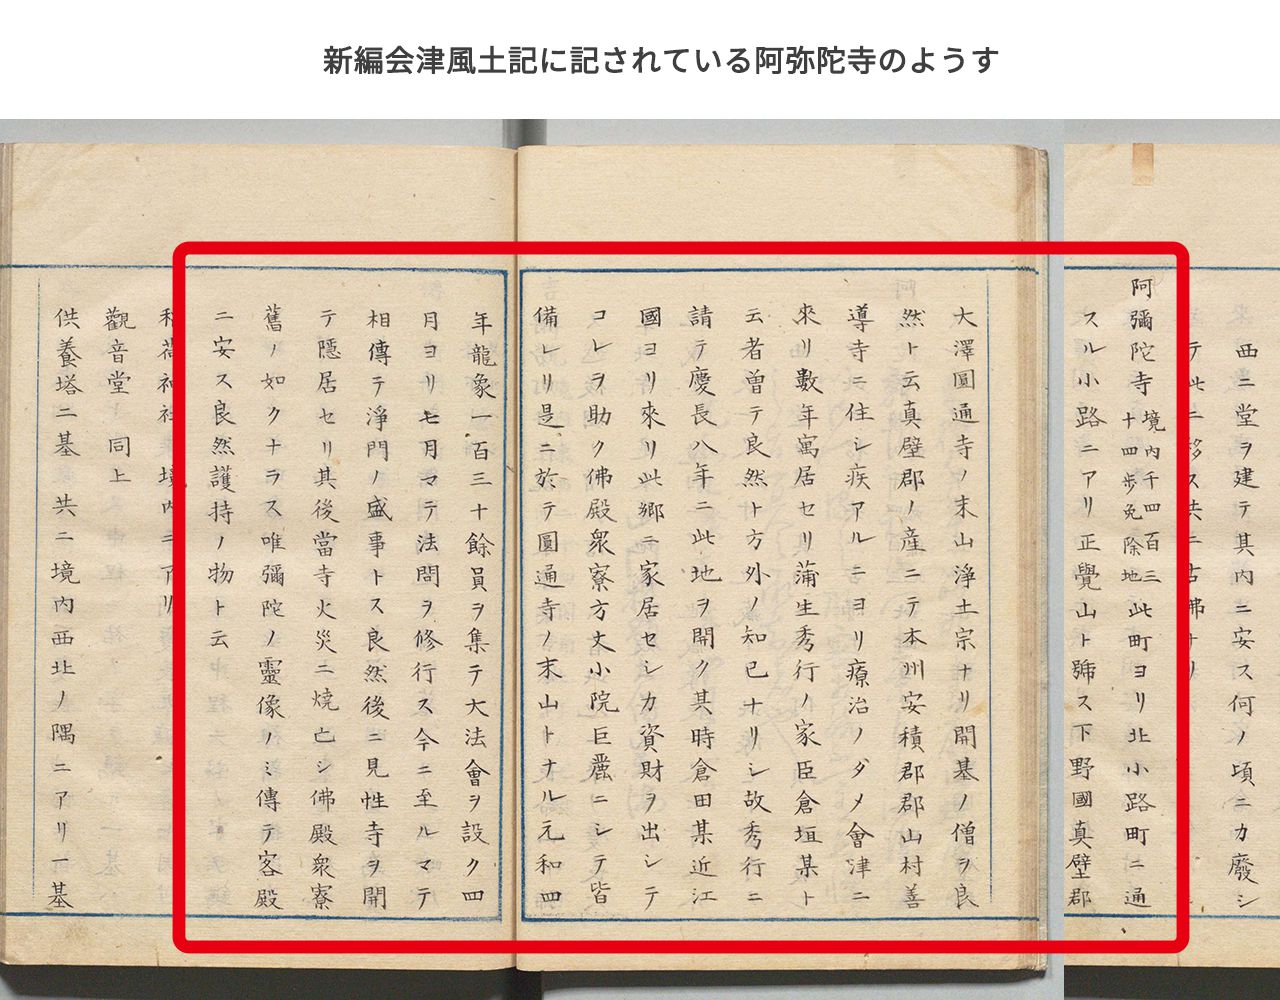 新編会津風土記に記されている阿弥陀寺のようす
西ニ堂ヲ建テ其内ニ安ス何ノ頃ニカ廢シ
テ此ニ移ス共ニ古佛ナリ
阿彌陀寺 境内千四百三十四歩免除地 此町ヨリ北小路町ニ通
スル小路ニアリ正覺山ト號ス下野國真壁郡
大澤圓通寺ノ末山淨土宗ナリ開基ノ僧ヲ良
然ト云真壁郡ノ産ニテ本州安積郡郡山村善
導寺ニ住シ疾アルニヨリ療治ノダメ會津ニ
來リ數年寓居セリ蒲生秀行ノ家臣倉垣某ト
云者曽テ良然ト方外ノ知己ナリシ故秀行ニ
請テ慶長八年ニ此地ヲ開ク其時倉田某近江
國ヨリ來リ此郷ニ家居セシカ資財ヲ出シテ
コレヲ助ク佛殿衆寮方丈小院巨麗ニシテ皆
備レリ是ニ於テ圓通寺ノ末山トナル元和四
年龍象一百三十餘員ヲ集テ大法會ヲ設ク四
月ヨリ七月マテ法問ヲ修行ス今ニ至ルマテ
相傳テ淨門ノ盛事トス良然後ニ見性寺ヲ開
テ隱居セリ其後當寺火災ニ焼亡シ佛殿衆寮
舊ノ如クナラス唯彌陀ノ靈像ノミ傳テ客殿
ニ安ス良然護持ノ物ト云
稻荷神社 境内ニアリ
觀音堂 同上
供養塔二基 共ニ境内西北ノ隅ニアリ一基